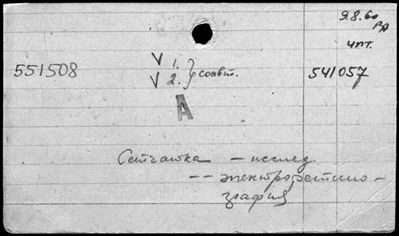 9.8.60
ВД
чпт.
551508
V 1.
V 2. } соавт.
541057
А
Сетчатка – исслед.
– – электроретино-
графия